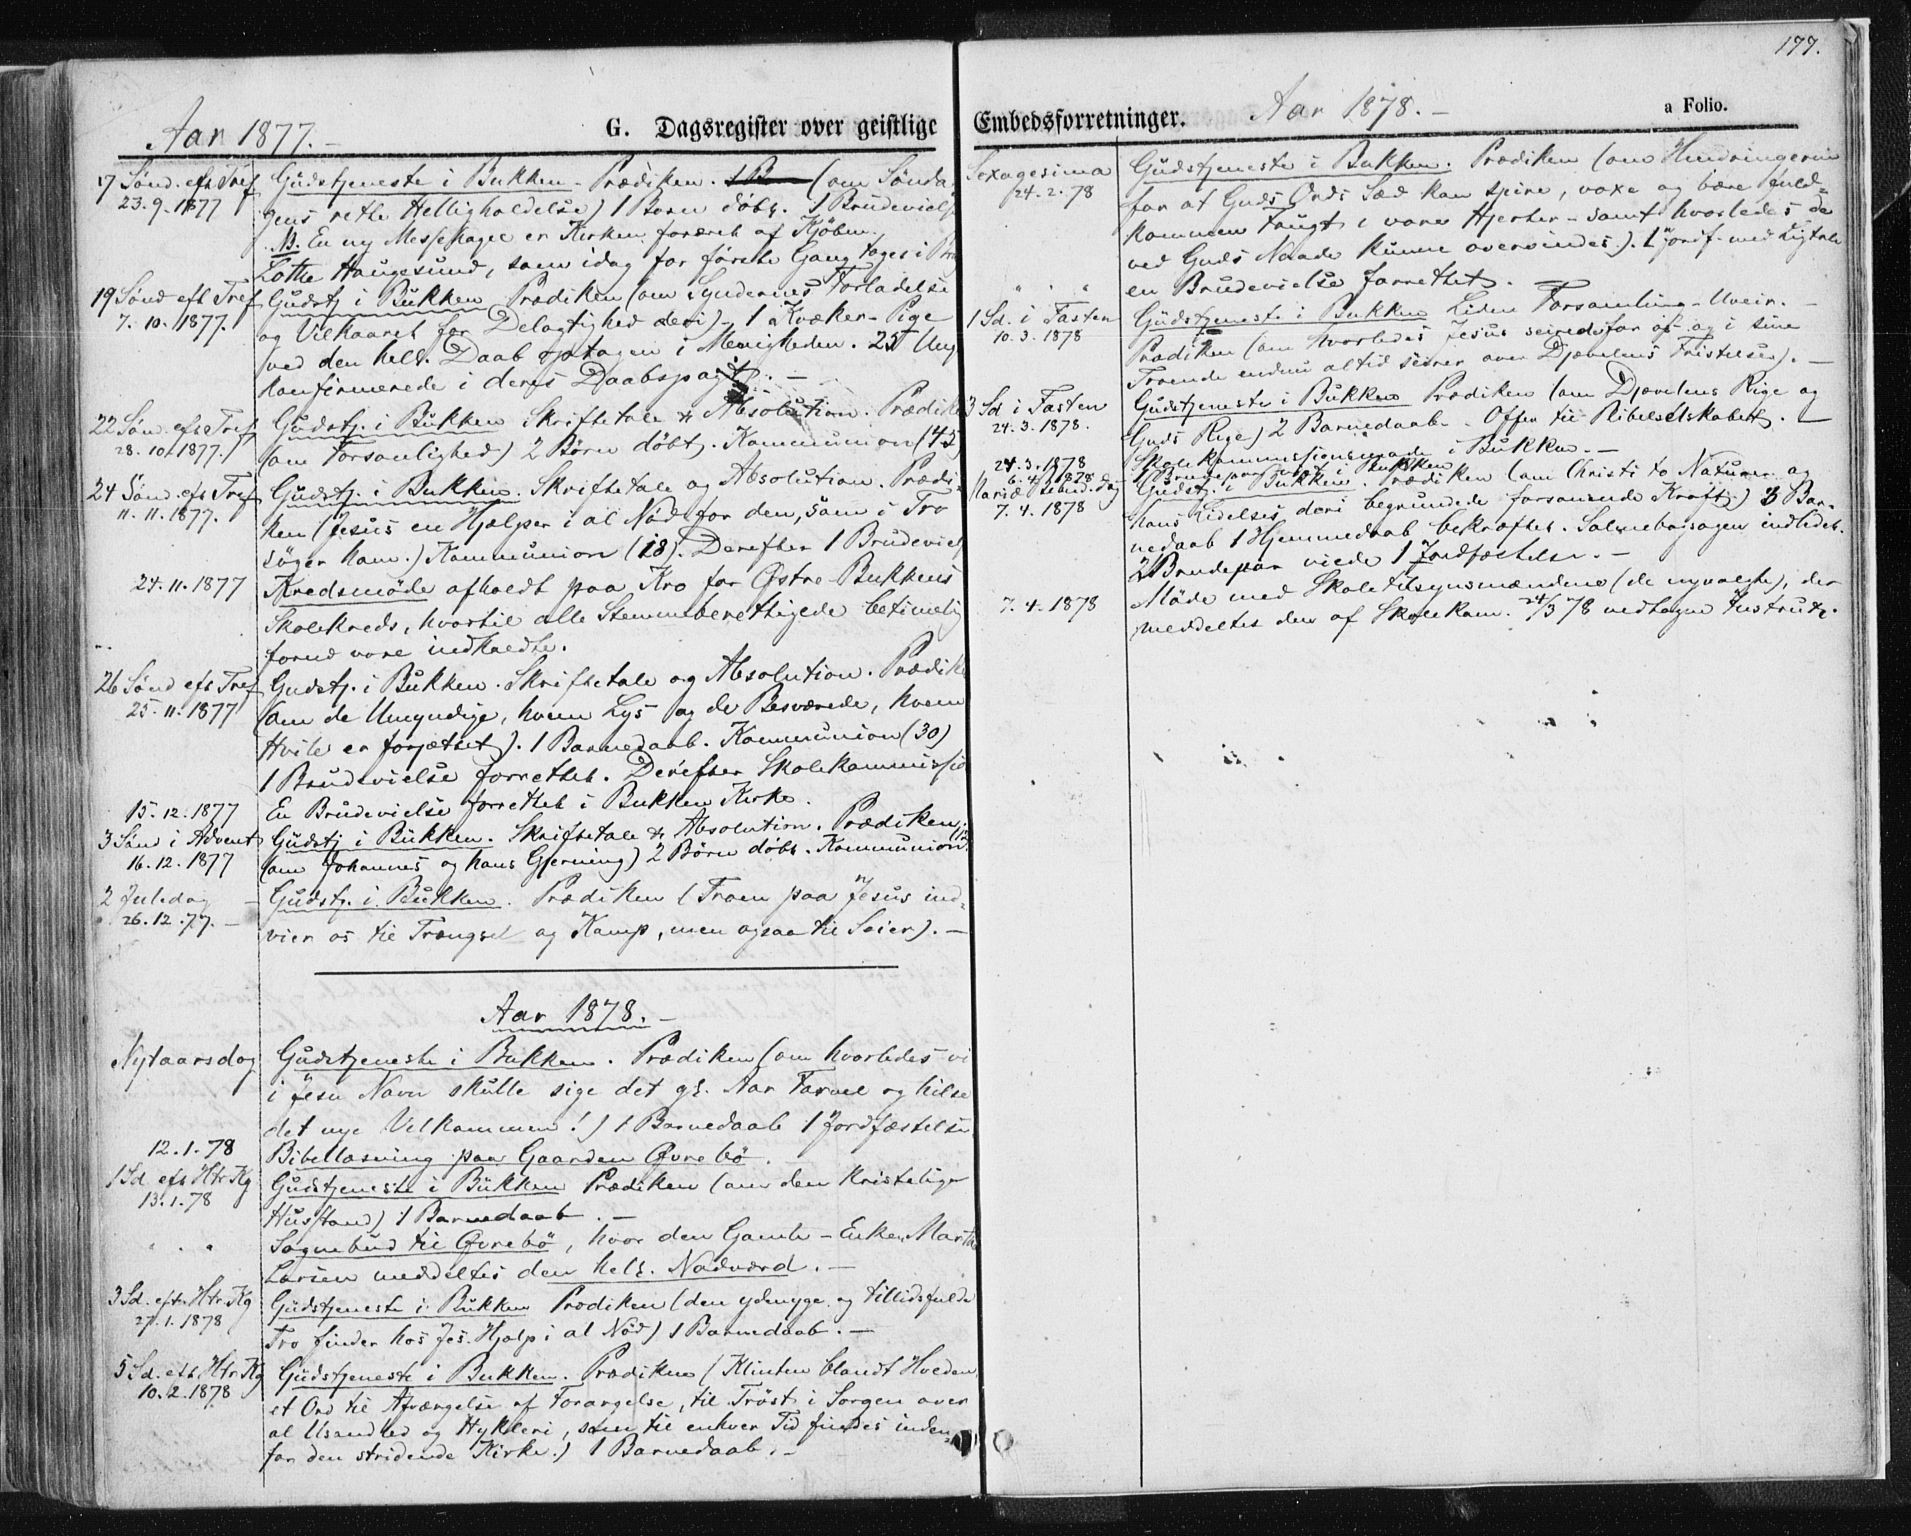 177.
G. Dagsregister over geistlige
Embedsforretninger.
a Folio.
Aar 1877.-
Aar 1878.-
17 Sønd. eft Tref 23.9.1877 Gudstjeneste i Bukken. Prædiken. (om Sønda-
gens rette Helligholdelse) 1 Barn døbt. 1 Brudeviels
NB. En ny Messehagel er Kirken foræret af Kjøbm.
Lothe Haugesund, som idag for første Gang toges i Bru
19 Sønd eft Tref 7.10.1877. Gudstj i Bukken Prædiken (om Syndernes Forladelse
og Vilkaaret for Delagtighed deri) - 1 Kvæker-Pige
ved den hell. Daab optagen i Menigheden. 25 Ung
konfirmerede i deres Daabspagt. -
22 Sønd. eft Tref 28.10.1877. Gudstj. i Bukken Skriftetale & Absolution. Prædike
(om Forsonlighed) 2 Børn døbt. Kommunion (45)
24 Sønd. eft Tref 11.11.1877. Gudstj. i Bukken. Skriftetale og Absolution. Prædi-
ken (Jesus en Hjælper i al Nød for den, som i Tro
søger ham.) Kommunion (18). Derefter 1 Brudeviel
24.11.1877 Kredsmøde afholdt paa Kro for Østre Bukkens
Skolekreds, hvortil alle Stemmeberettigede betimelig
forud vare indkaldte.
26 Sønd eft Tref 25.11.1877 Gudstj. i Bukken. Skriftetale og Absolution. Prædike
(om de Umyndige, hvem Lys og de Besværede, hvem
Hvile er forjættet). 1 Barnedaab. Kommunion (30)
1 Brudevielse forrettet. Derefter Skolekommissio
15.12.1877 En Brudevielse forrettet i Bukken Kirke.
3 Sønd i Advent 16.12.1877 Gudstj i Bukken. Skriftetale & Absolution. Prædiken.
(om Johannes og hans Gjerning) 2 Børn døbt. Kommunion (12
2 Juledag 26.12.77.- Gudstj. i Bukken. Prædiken (Troen paa Jesus ind-
vier os til Trængsel og Kamp, men ogsaa til Seier). -
Aar 1878.-
Nytaarsdag Gudstjeneste i Bukken. Prædiken (om hvorledes vi
i Jesu Navn skulle sige det gl. Aar Farvel og hilse
det nye Velkommen!) 1 Barnedaab 1 Jordfæstelse
12.1.78 Bibellæsning paa Gaarden Øvrebø.
1 Sd. eft Htr Kg 13.1.78 Gudstjeneste i Bukken Prædiken (om den kristelige
Husstand) 1 Barnedaab. -
" " " Sognebud til Øvrebø, hvor den Gamle - Enken Marthe
Larsen meddeltes den hell. Nadverd. -
3 Sd. eft. Htr Kg 27.1.1878 Gudstjeneste i Bukken Prædiken (den ydmyge og tillidsfulde
Tro finder hos Jes. Hjælp i al Nød) 1 Barnedaab. -
5 Sd. eft. Htr Kg 10.2.1878 Gudstjeneste i Bukken. Prædiken (Klinten blandt Hveden,
et Ord til Afværgelse af Forargelse, til Trøst i Sorgen over
al Usandhed og Hykleri, som til enhver Tid findes inden-
for den stridende Kirke.) 1 Barnedaab. -
Sexagesima 24.2.78 Gudstjeneste i Bukken. Prædiken (om Hindringerne
for at Guds Ords Sæd kan spire, voxe og bære fuld-
kommen Frugt i vore Hjerter - samt hvorledes de
ved Guds Naade kunne overvindes). 1 Jordf. med Ligtale
" " " en Brudevielse forrettet.
1 Sd. i Fasten 10.3.1878 Gudstjeneste i Bukken Liden Forsamling - Uveir. -
Prædiken (om hvorledes Jesus seirede for os og i sine
Troende endnu altid seirer over Djævelens Fristelser). -
3 Sd i Fasten 24.3.1878. Gudstjeneste i Bukken Prædiken (om Djævelens Rige og
Guds Rige) 2 Barnedaab - Offer til Bibelselskabet. -
24.3.1878 Skolekommissionsmøde i Bukken. -
6.4.1878 1 Brudepar viet i Bukken
Mariæ Bebud. Dag 7.4.1878 Gudstj. i Bukken. Prædiken (om Christi to Naturer og
hans Lidelses deri begrundede forsonende Kraft.) 3 Bar-
nedaab 1 Hjemmedaab bekræftet. Salmebogsagen indledet.
2 Brudepar viede 1 Jordfæstelse. -
7.4.1878 Møde med Skoletilsynsmændene (de nyvalgte), der
meddeltes den af Skolekom. 24/3 78 vedtagne Instrux.